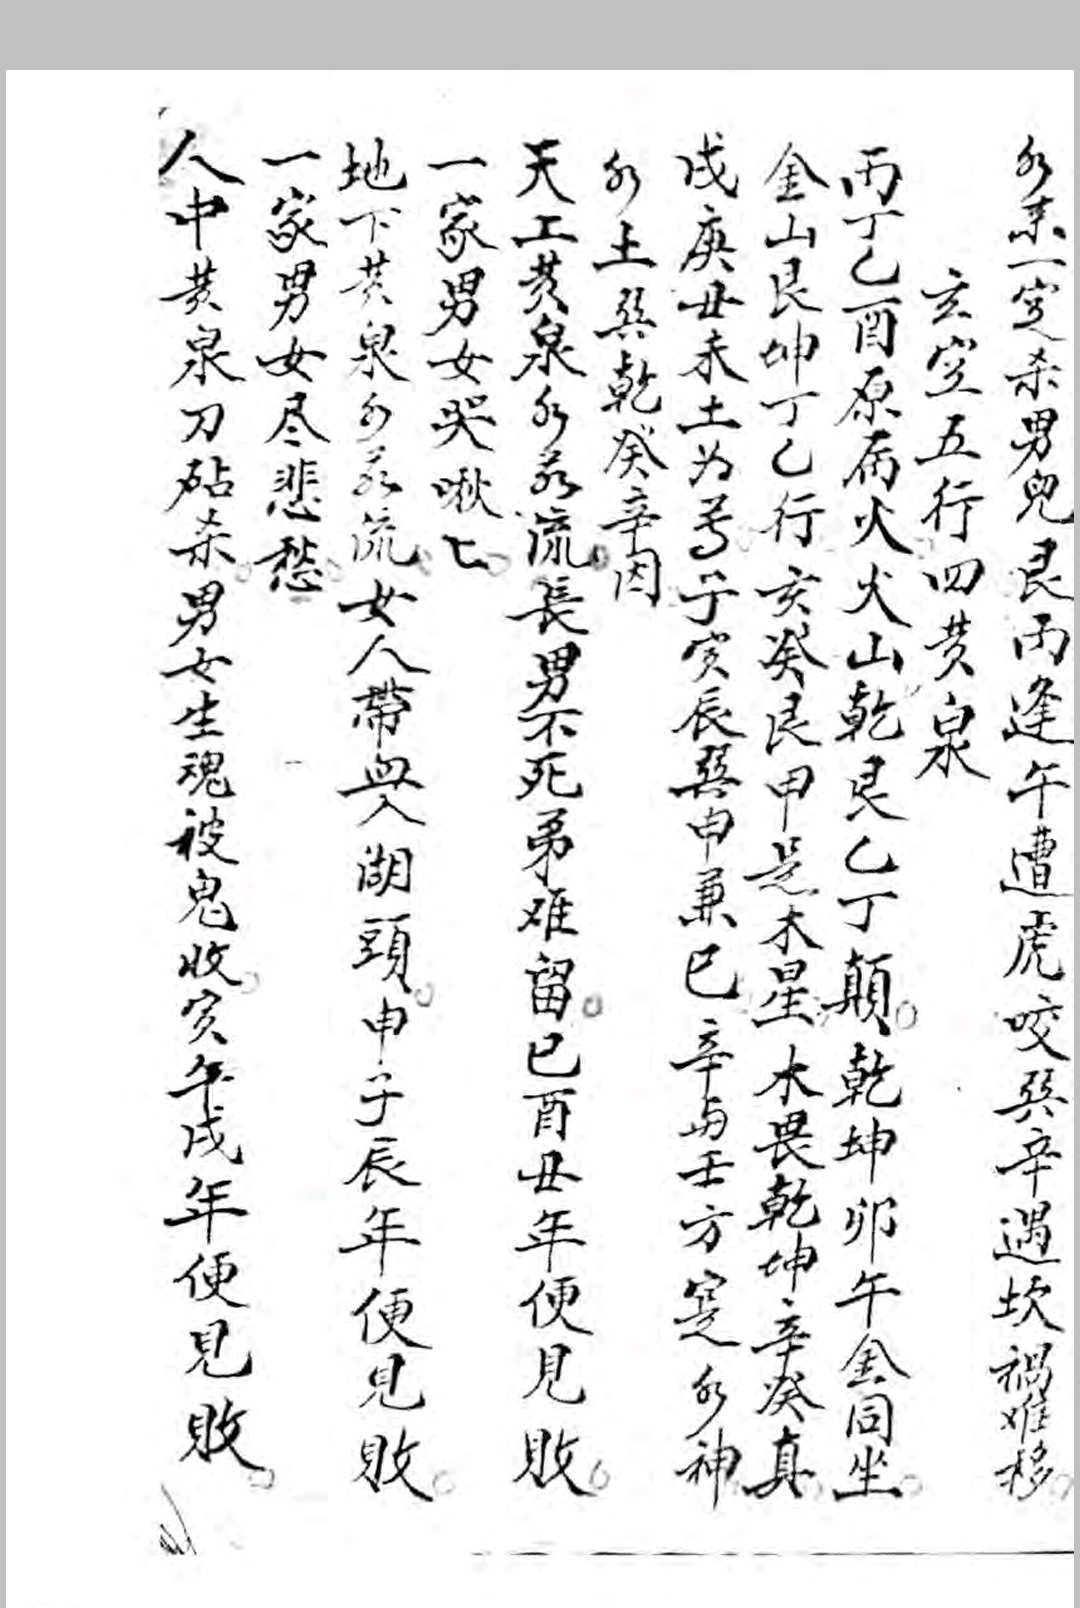 水来一定杀男兒艮丙逢午遭虎咬巽辛遇坎禍难移
玄空五行四黄泉
丙丁乙酉原属火火山乾艮乙丁顛乾坤卯午金同坐
金山艮坤丁乙行亥癸艮甲是木星木畏乾坤辛癸真
戌庚丑未土为号子寅辰巽申兼巳辛与壬方定水神
水土巽乾癸辛因
天工黄泉水若流長男不死弟难留巳酉丑年便見敗
一家男女哭啾匕
地下黄泉水若流女人帶血入湖頭申子辰年便見敗
一家男女尽悲愁
人中黄泉刀砧杀男女生魂被鬼收寅午戌年便見敗